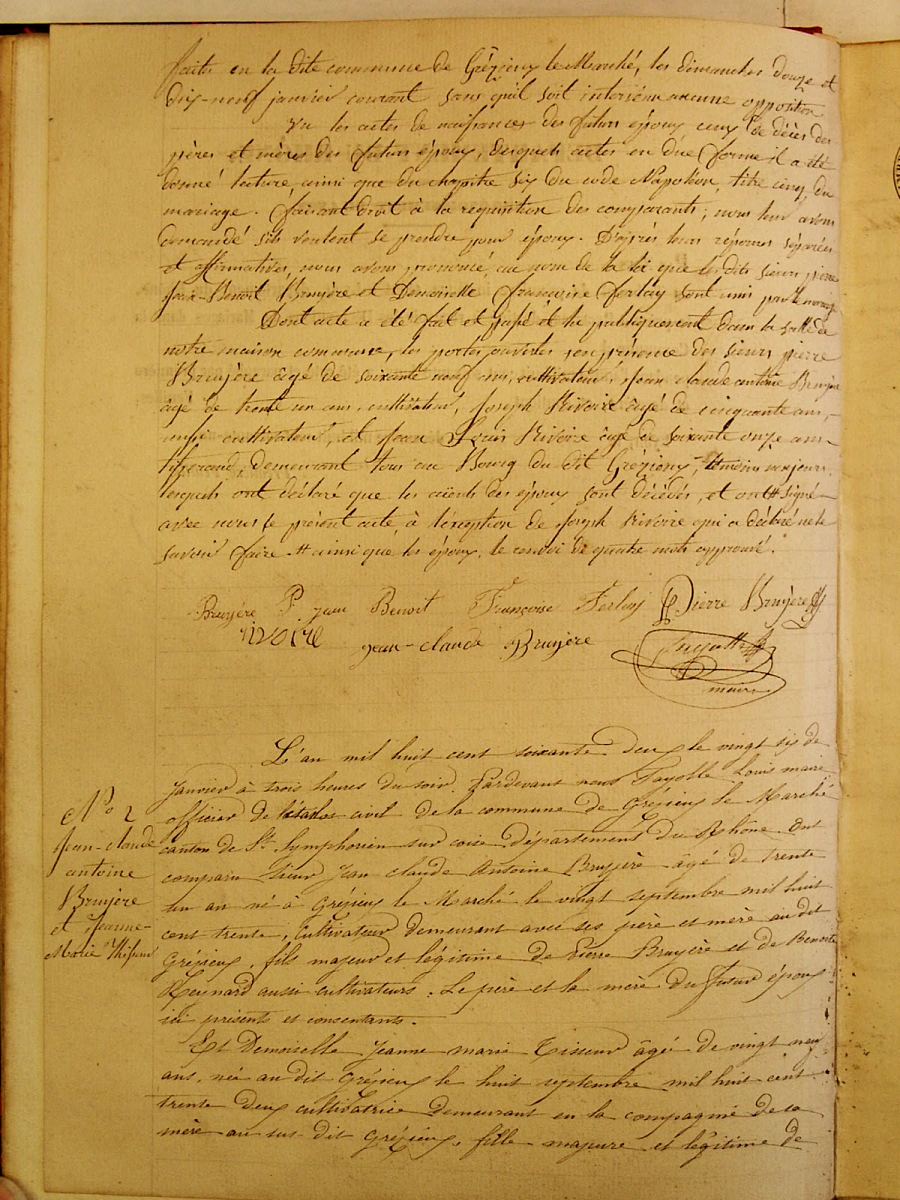 faites en la dite commune de Grézieux le Marché, les dimanches douze et
dix-neuf janvier courant sans qu'il soit intervenu aucune opposition
Vu les actes de naissances des futurs époux, ceux de décès des
pères et mères des futurs époux, desquels actes en due forme il a été
donné lecture, ainsi que du chapitre six du code Napoléon, titre cinq, du
mariage. faisant droit à la requisition des comparants; nous leur avons
demandé s'ils veulent se prendre pour époux. D'après leurs réponses séparées
et affirmatives, nous avons prononcé, au nom de la loi que les dits sieurs pierre
Jean-Benoit Bruyère et Demoiselle françoise ferlay sont unis par le mariage
Dont acte a été fait et passé et lu publiquement dans la salle de
notre maison commune, les portes ouvertes en présence des sieurs pierre
Bruyère âgé de soixante neuf ans, cultivateur, Jean claude antoine Bruyère
âgé de trente un ans, cultivateur, Joseph Rivoire âgé de cinquante ans,
aussi cultivateur, et Jean Rivoire âgé de soixante onze ans
tisserand, demeurant tous au Bourg du dit Grézieux, témoins majeurs
lesquels ont déclaré que les aïeuls des époux sont décédés, et ont # signé
avec nous le présent acte à l'éxeption de Joseph Rivoire qui a déclaré ne le
savoir faire. # ainsi que les époux, le renvoi de quatre mots approuvé.
Bruyère P jean Benoit Françoise Ferlay Pierre Bruyère
rivoire jean-claude Bruyère Fayolle
maire
L'an mil huit cent soixante-deux le vingt six de
Janvier à trois heures du soir. Pardevant nous Fayolle Louis maire
officier de l'état civil de la commune de Grézieux le Marché
canton de St. Symphorien sur coise département du Rhône. Ont
comparu Sieur Jean claude Antoine Bruyère âgé de trente
un an né à Grézieux le Marché le vingt septembre mil huit
cent trente, cultivateur demeurant avec ses père et mère au dit
Grézieux, fils majeur et légitime de Pierre Bruyère et de Benoite
Reynard aussi cultivateurs. Le père et la mère du futur époux
ici présents et consentants.
Et Demoiselle Jeanne marie Tisseur âgé de vingt neuf
ans, née au dit Grézieux le huit septembre mil huit cent
trente deux cultivatrice demeurant en la compagnie de sa
mère au sus dit Grézieux, fille majeure et légitime de
No 2
Jean-claude
antoine
Bruyère
et Jeanne-
Marie Thisseur